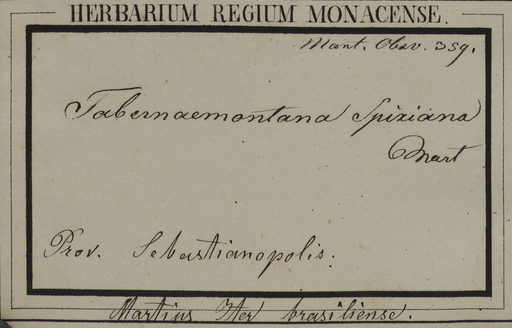 HERBARIUM REGIUM MONACENSE.
Mart. Obsv. 359.
Tabernaemontana Spixiana
Mart
Prov. Sebastianopolis.
Martius Iter brasiliense.